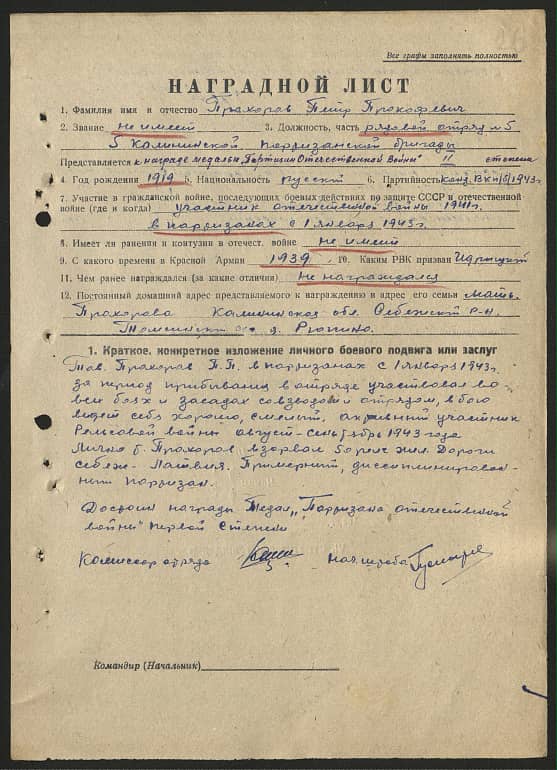 Все графы заполнять полностью
НАГРАДНОЙ ЛИСТ
1. Фамилия имя и отчество Прохоров Петр Прокофевич
2. Звание не имеет 3. Должность, часть рядовой отряд №5
5 Калининской партизанской бригады
Представляется к награде медалью "Партизан Отечественной Войны" II степени
4. Год рождения 1919 5. Национальность русский 6. Партийность канд. ВКП(б) 1943 г.
7. Участие в гражданской войне, последующих боевых действиях по защите СССР и отечественной
войне (где и когда) участник отечественной войны 1941 г.
в партизанах с 1 января 1943 г.
8. Имеет ли ранения и контузии в отечест. войне не имеет
9. С какого времени в Красной Армии 1939 10. Каким РВК призван Идрицкий
11. Чем ранее награждался (за какие отличия) Не награждался
12. Постоянный домашний адрес представляемого к награждению и адрес его семьи мать
Прохорова Калининская обл. Себежский р-н.
д.
1. Краткое, конкретное изложение личного боевого подвига или заслуг
Тов. Прохоров П.П. в партизанах с 1 января 1943 г.
за период прибывания в отряде участвовал во
всех боях и засадах со взводом и отрядом, в бою
ведет себя хорошо, смелый, активный участник
Рельсовой войны август-сентябрь 1943 года
Лично т. Прохоров взорвал 5 рельс жел. Дороги
Себеж-Латвия. Примерный, дисциплинирован-
ный партизан.
Достоин награды Медал "Партизана отечественной
войны" первой степени
Комиссар отряда нач. штаба
Командир (Начальник)